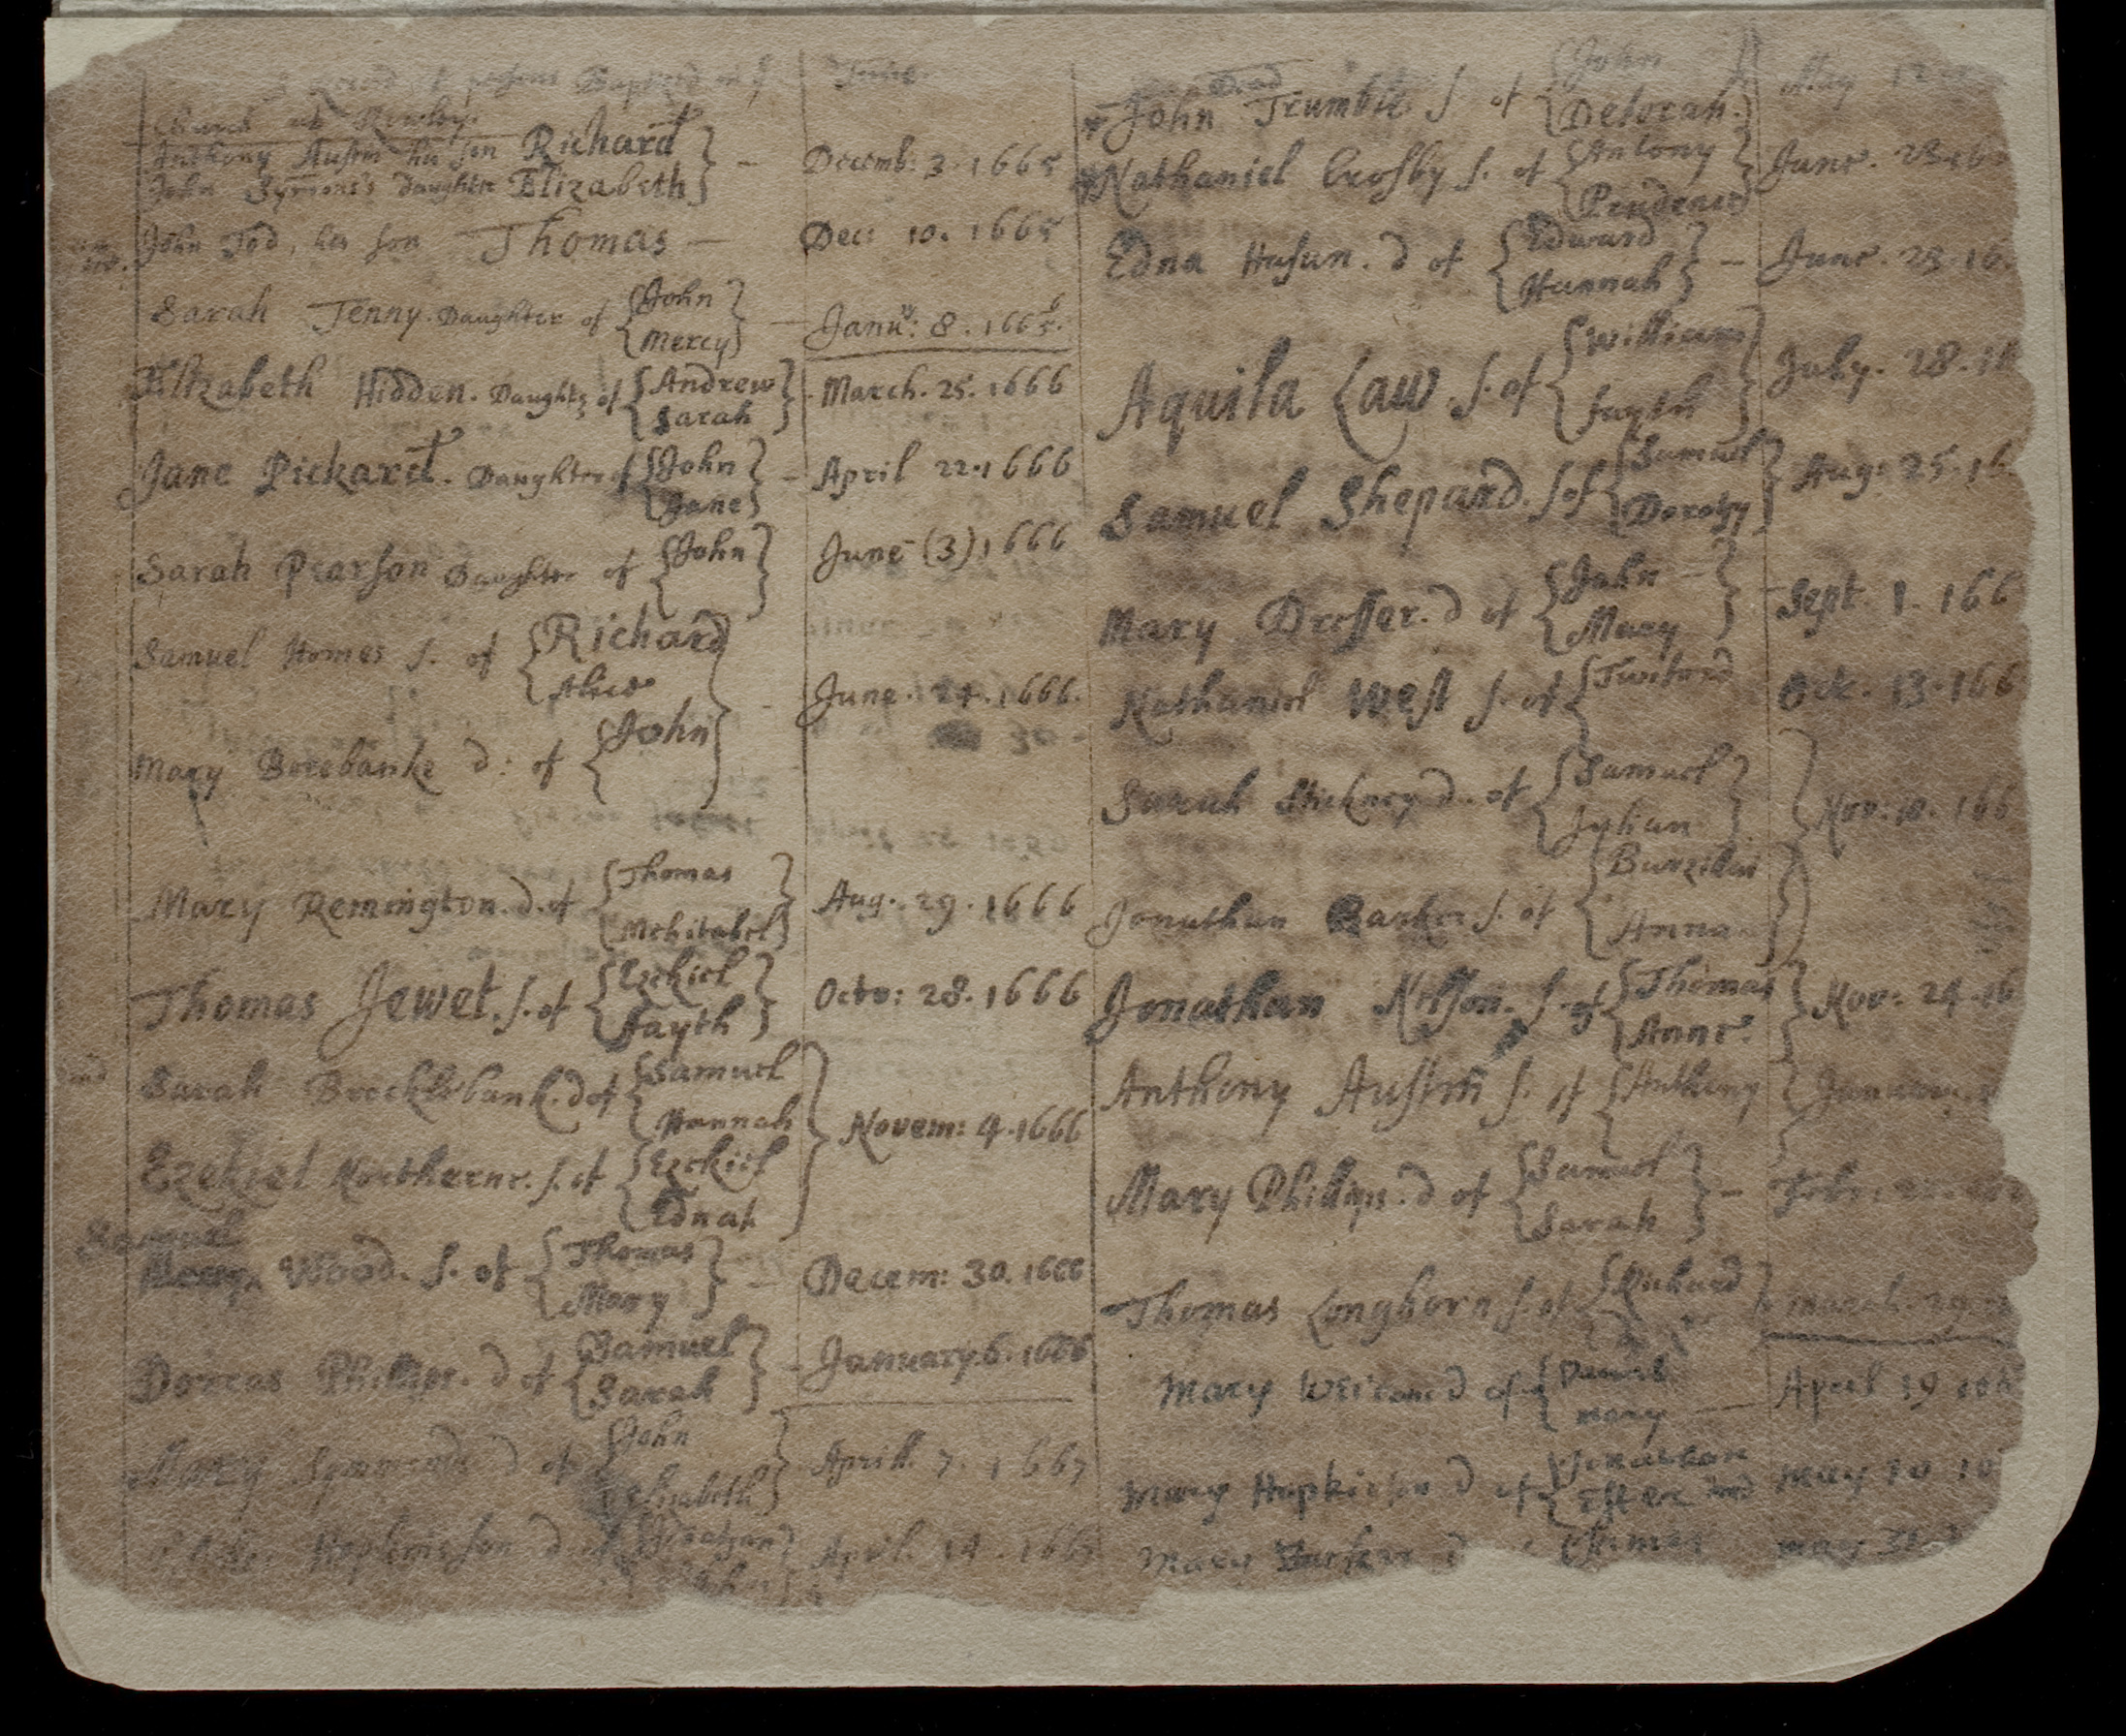 A record of persons Baptized in ye Time
Church at Rowley.
Anthony Austin his son Richard
John Symons's daughter Elizabeth } - Decemb: 3. 1665
John Tod, his son Thomas - Dec: 10. 1665
Sarah Jenny. Daughter of { John
Mercy } - Janu: 8. 1665/6
Elizabeth Hidden. Daughtr of { Andrew
Sarah } March. 25. 1666
Jane Pickard. Daughter of { John
Jane } - April 22. 1666
Sarah Pearson Daughter of { John } June (3) 1666
Samuel Homes s. of { Richard
Alice
June. 24. 1666.
Mary Borebanke d: of { John }
Mary Remington. d. of { Thomas
Mehitabel } Aug. 29. 1666
Thomas Jewet. s. of { Ezekiel
Fayth } Octo: 28. 1666
Sarah Brocklebank. d of { Samuel
Hannah
Novem: 4. 1666
Ezekiel Northerne. s. of { Ezekiel
Ednah }
Samuel
Wood. s. of { Thomas
Mary } - Decem: 30. 1666
Dorcas Phillips. d of { Samuel
Sarah } - January 6. 1666
Mary Symmonds d of { John
Elisabeth } Aprill. 7. 1667
Hopkinson d. of { Jonathan
April. 14. 1667
Dead
John Trumble s of { John
Deborah. } May 12
Nathaniel Crosby s. of { Antony
Prudence } June. 23. 16
Edna Hasun. d of { Edward
Hannah } - June. 23. 16
Aquila Law. s. of { William
Fayth } July. 28. 16
Samuel Shepard. s of { Samuel
Dorothy } Aug: 25. 16
Mary Dresser. d of { John
Mary } Sept. 1. 166
Nathaniel West s. of { Twiford Oct. 13. 166
Sarah Stickney d. of { Samuel
Julian }
Nov. 10. 166
Jonathan Barker s. of { Barzillai
Anna }
Jonathan Nelson. s. of { Thomas
Anne. } Nov: 24. 16
Anthony Austin s. of { Anthony January
Mary Phillips. d of { Samuel
Sarah } - Febr
Thomas Longhorn s. of { Richard } march. 29
Mary Weicom d of { Daniel
mary - April 19 166
Mary Hopkinson d of { Jonathan
Ester May 10 16
Mary d Thomas may 31